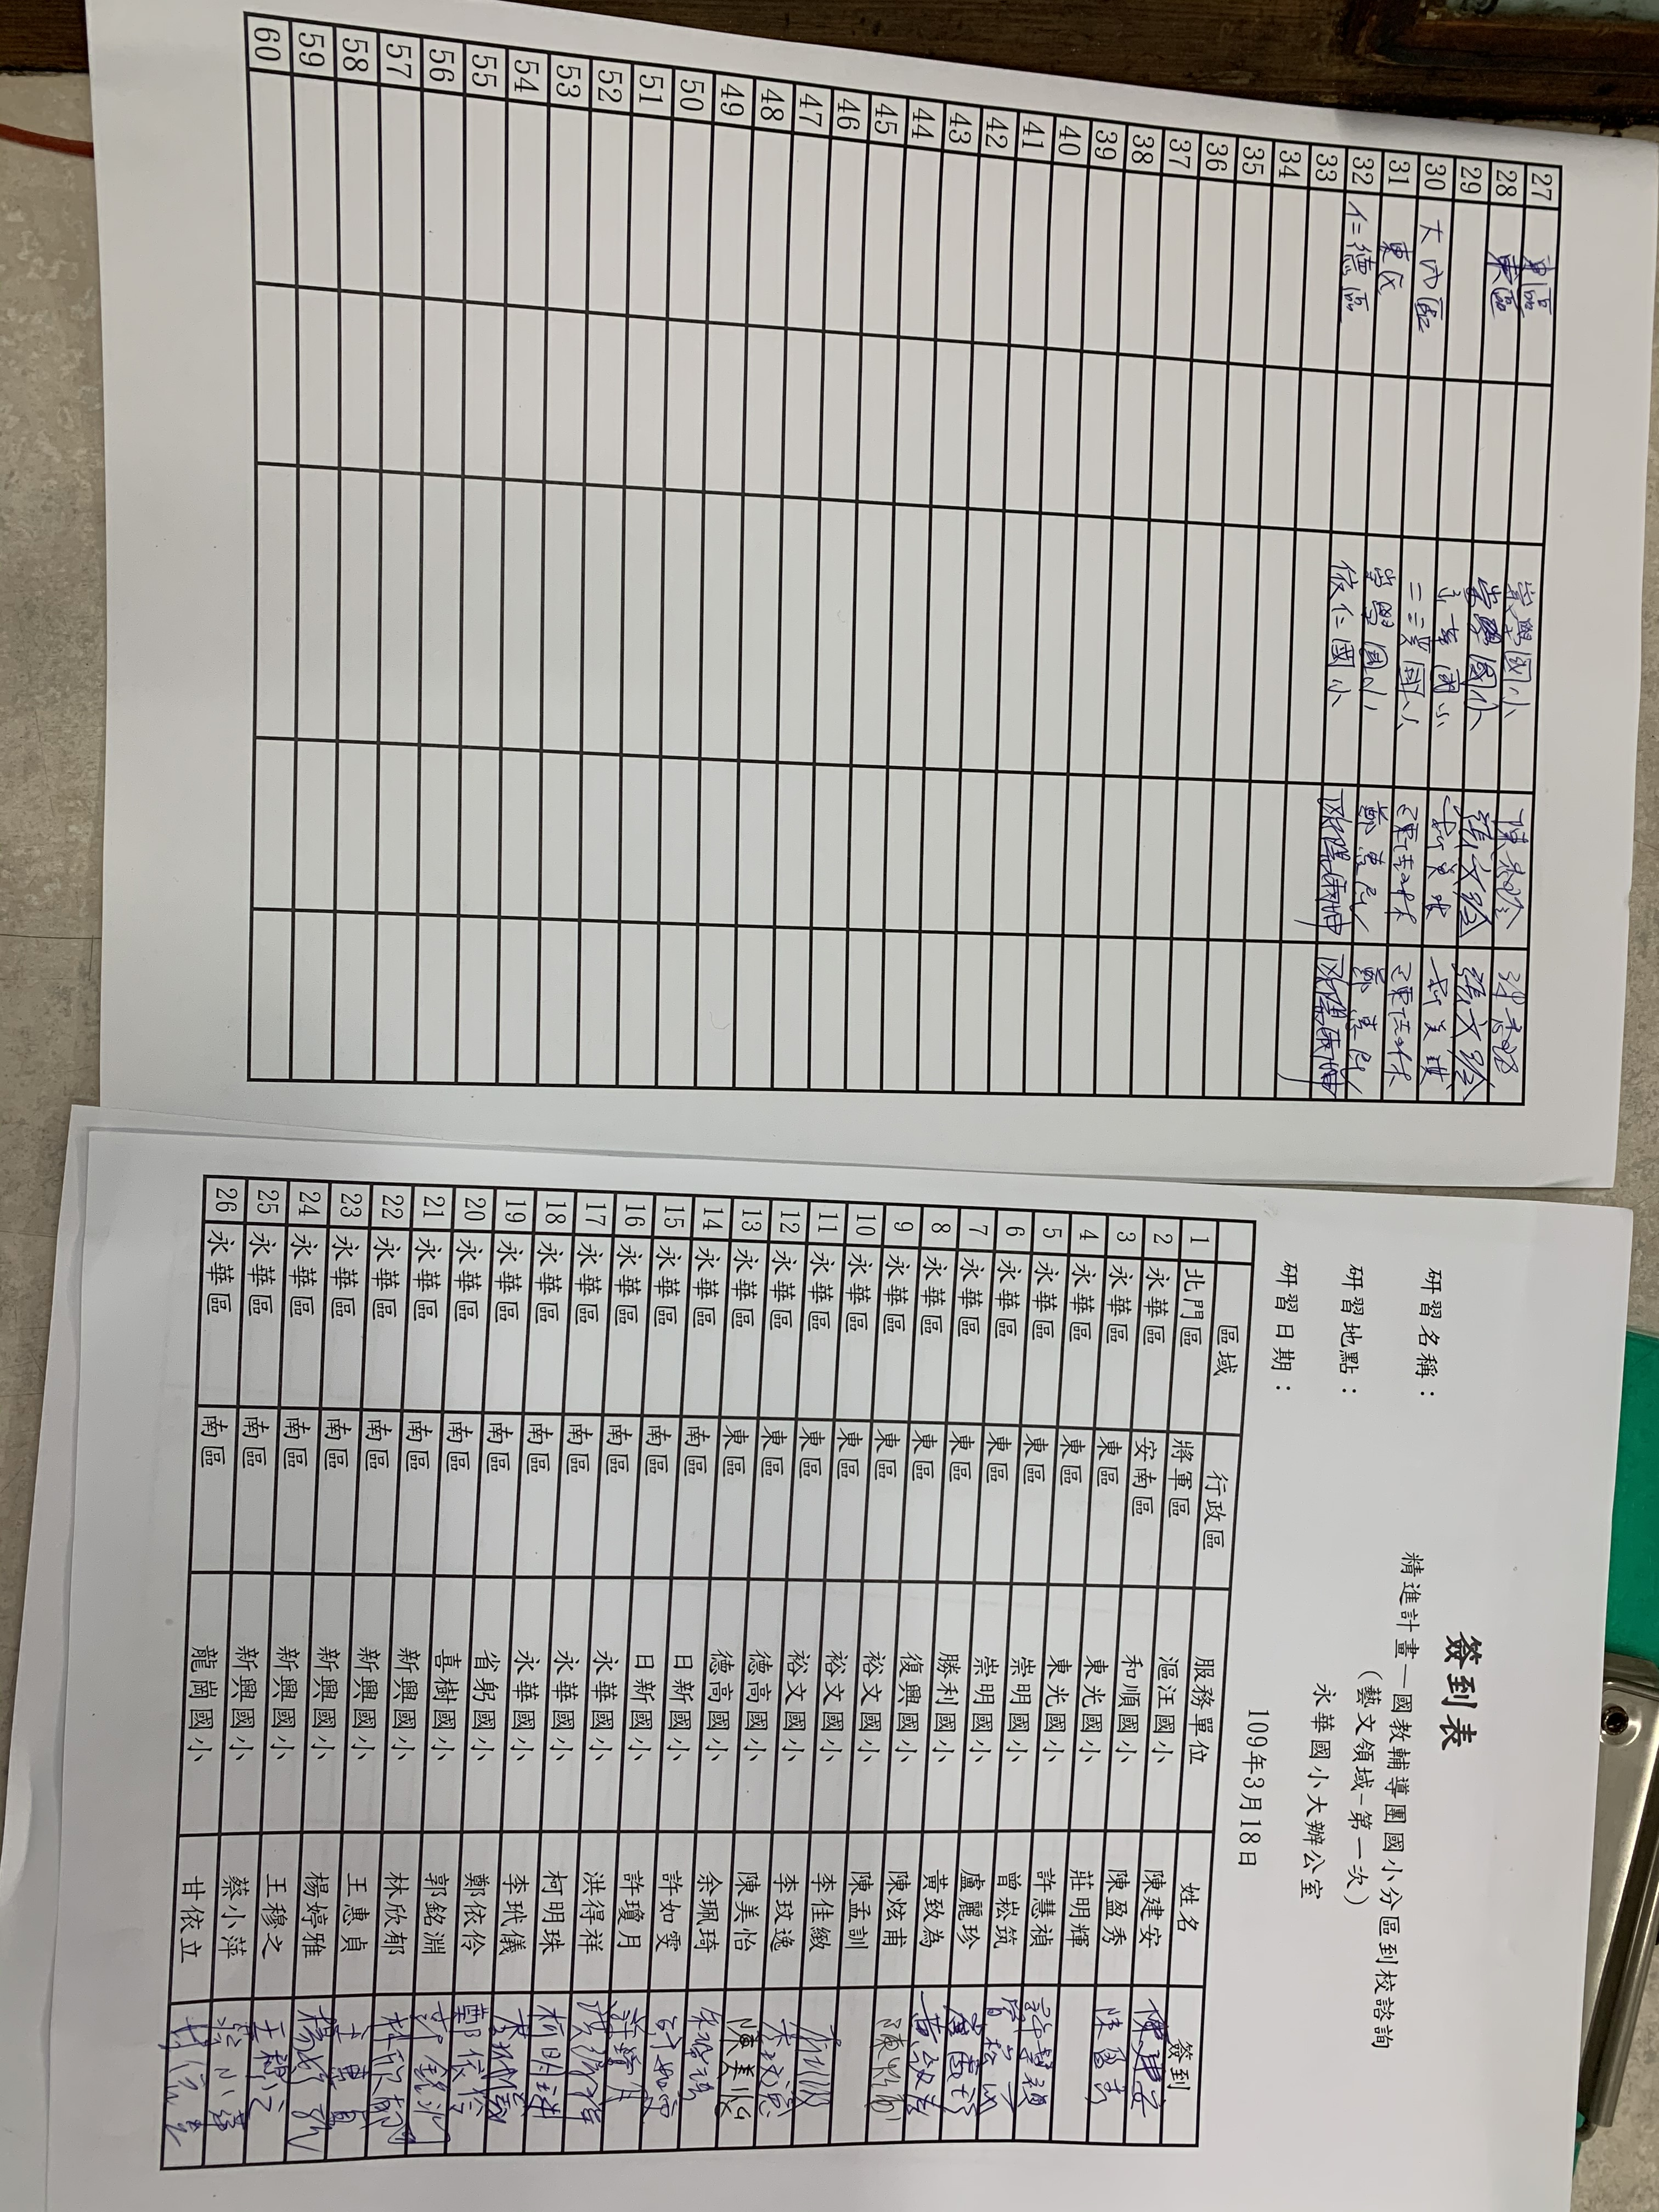 簽到表
研習名稱：
精進計畫—國教輔導團國小分區到校諮詢
（藝文領域-第一次）
研習地點：
永華國小大辦公室
研習日期：
109年3月18日
區域 行政區 服務單位 姓名 簽到
1 北門區 將軍區 漚汪國小 陳建安 陳建安
2 永華區 安南區 和順國小 陳盈秀 陳盈秀
3 永華區 東區 東光國小 莊明輝
4 永華區 東區 東光國小 許慧禎 許慧禎
5 永華區 東區 崇明國小 曾崧筑 曾崧筑
6 永華區 東區 崇明國小 盧麗珍 盧麗珍
7 永華區 東區 勝利國小 黃致為 黃致為
8 永華區 東區 復興國小 陳炫甫 陳炫甫
9 永華區 東區 裕文國小 陳孟訓
10 永華區 東區 裕文國小 李佳緻
11 永華區 東區 裕文國小 李玟逸 李玟逸
12 永華區 東區 德高國小 陳美怡 陳美怡
13 永華區 東區 德高國小 余珮琦 余珮琦
14 永華區 南區 日新國小 許如雯 許如雯
15 永華區 南區 日新國小 許瓊月 許瓊月
16 永華區 南區 永華國小 洪得祥 洪得祥
17 永華區 南區 永華國小 柯明珠 柯明珠
18 永華區 南區 永華國小 李玳儀 李玳儀
19 永華區 南區 省躬國小 鄭依伶 鄭依伶
20 永華區 南區 喜樹國小 郭銘淵 郭銘淵
21 永華區 南區 新興國小 林欣郁 林欣郁
22 永華區 南區 新興國小 王惠貞 王惠貞
23 永華區 南區 新興國小 楊婷雅 楊婷雅
24 永華區 南區 新興國小 王穆之 王穆之
25 永華區 南區 新興國小 蔡小萍 蔡小萍
26 永華區 南區 龍崗國小 甘依立 甘依立
27 東區 崇學國小
28 東區 崇學國小 張文玲 張文玲
29 國小
30 大內區 二溪國小
31 東區 崇學國小
32 仁德區 依仁國小
33
34
35
36
37
38
39
40
41
42
43
44
45
46
47
48
49
50
51
52
53
54
55
56
57
58
59
60